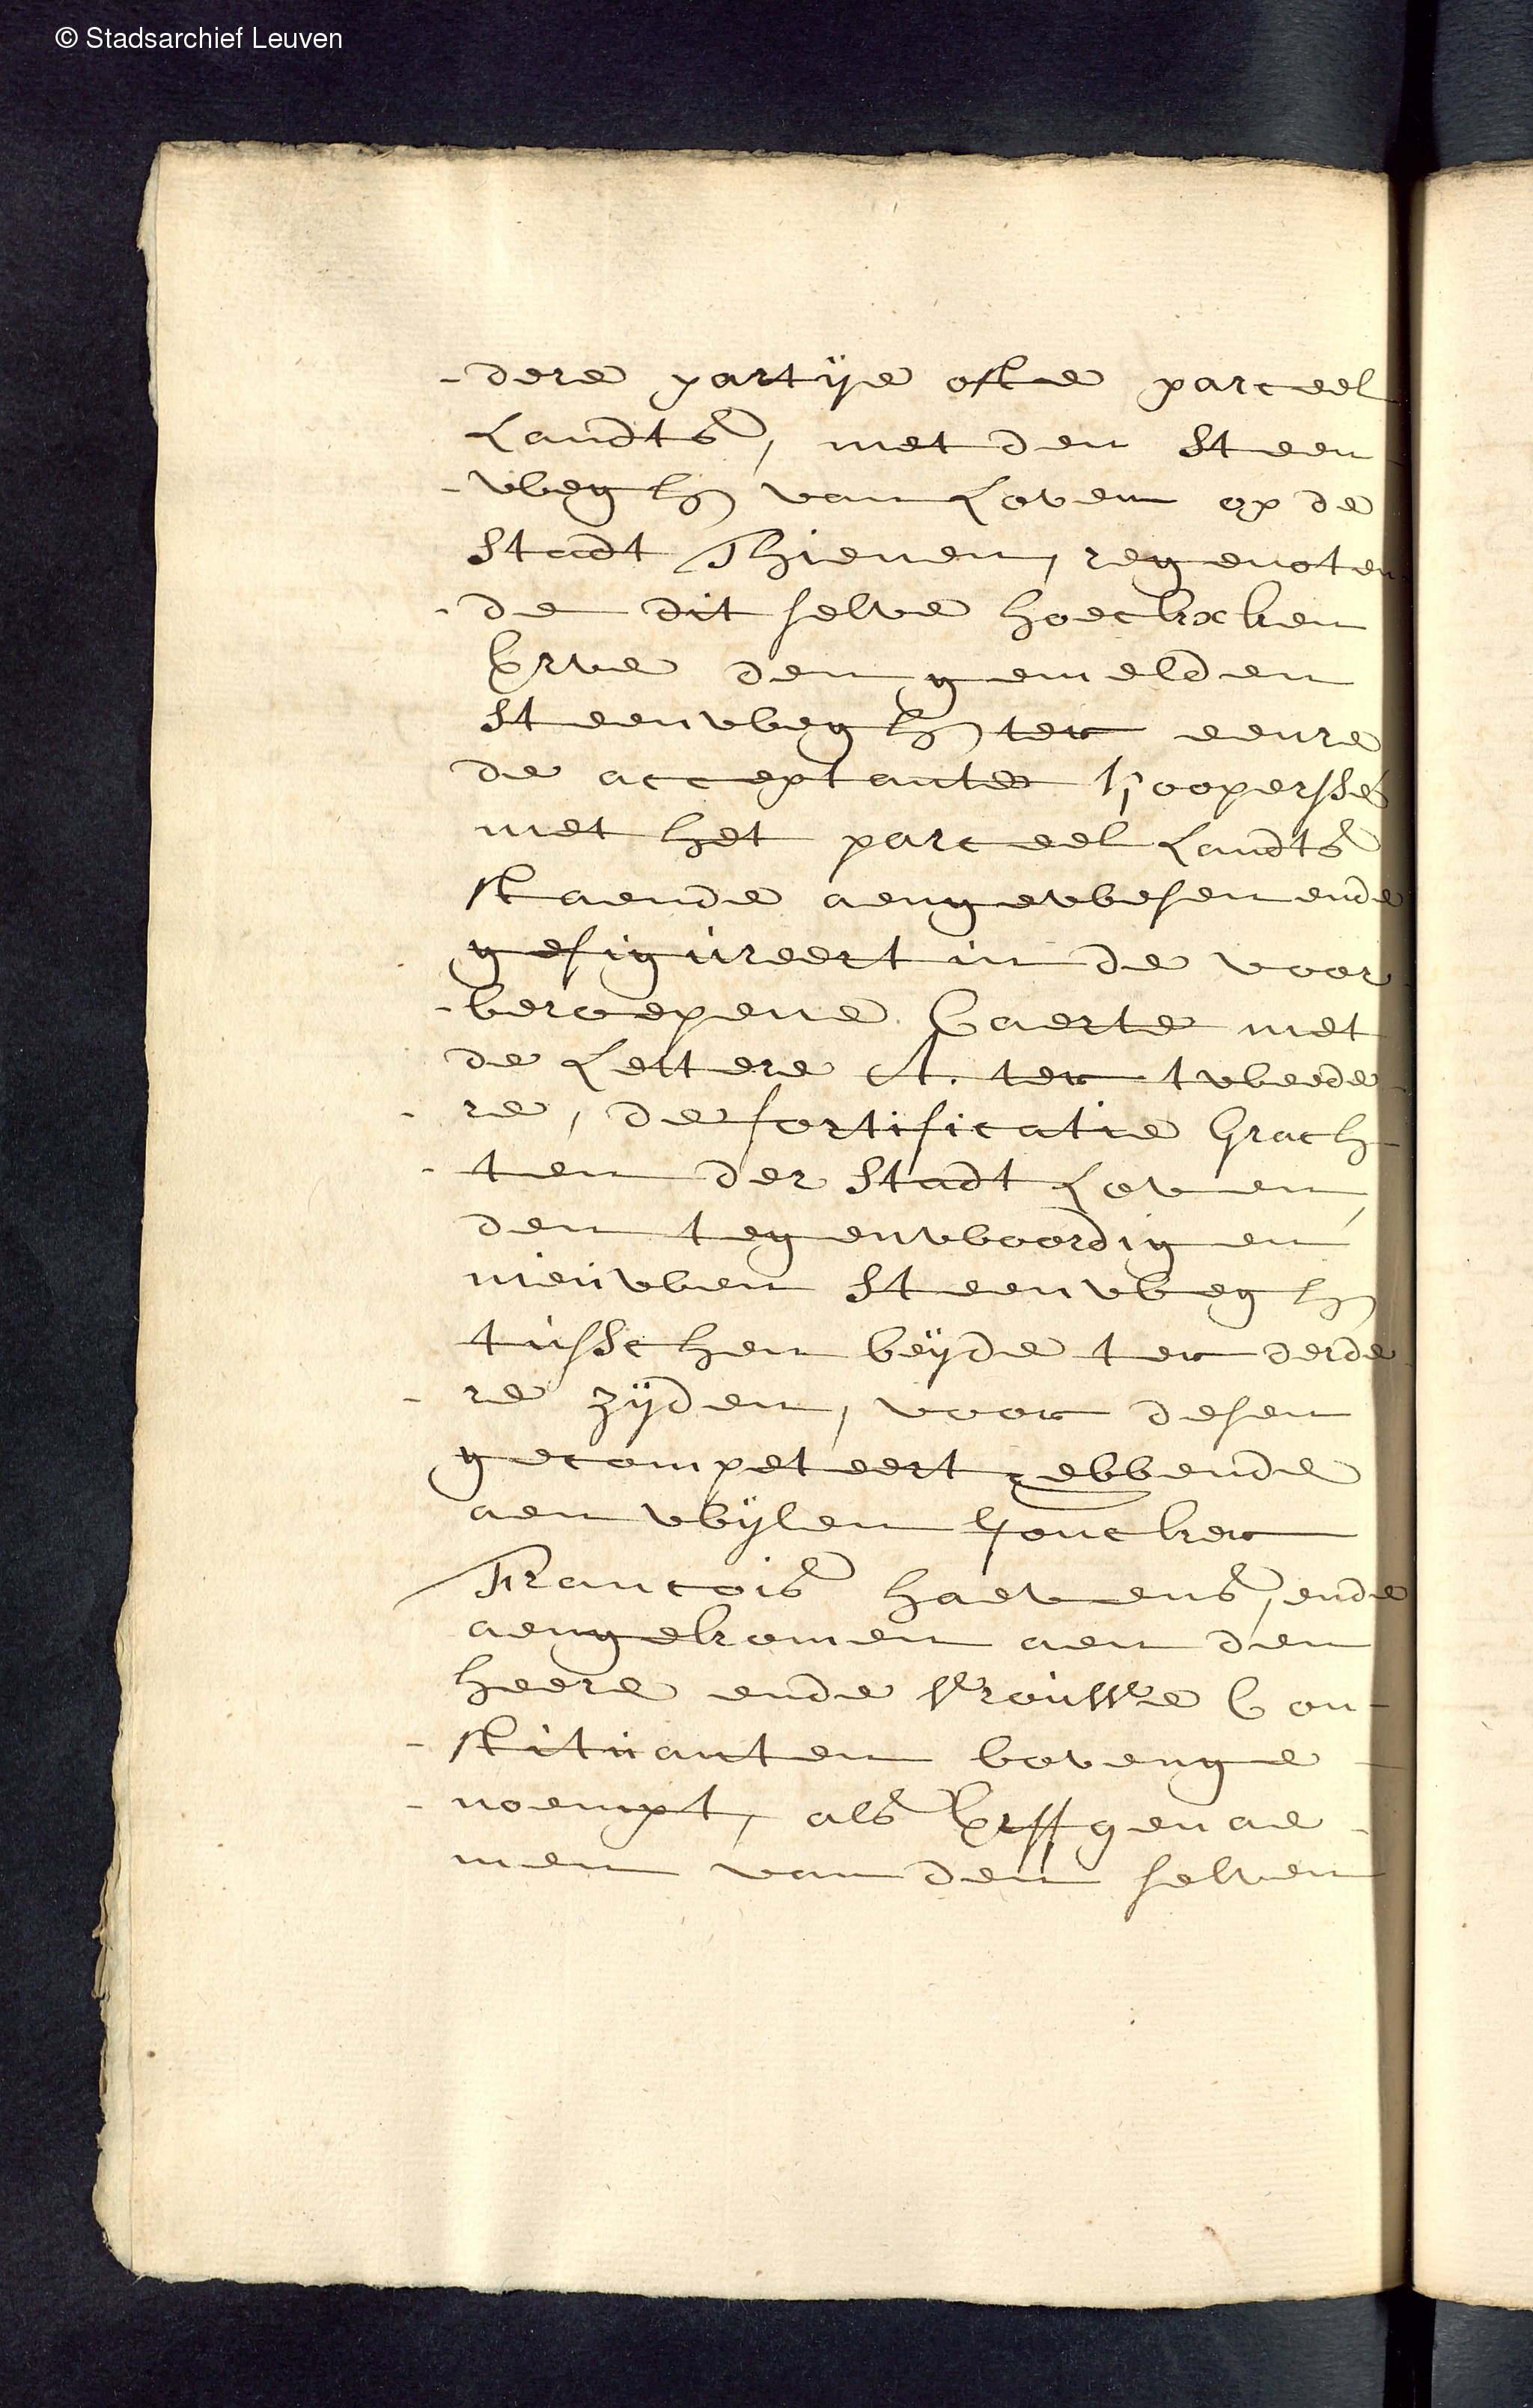 © Stadsarchief Leuven
-dere partÿe ofte parceel
Landts, met den Steen-
-wegh van Loven op de
Stadt Thienen, regenoten-
-de dit selve hoeckxken
Erve den gemelden
Steenwegh ter eenre
de acceptante Coopersse
met het parceel Landts
staende aengewesen ende
gefigureert in de voor-
-beroepene Caerte met
de Lettere A. ter tweede-
-re, de fortificatie Grach-
-ten der Stadt Loven,
den tegenwoordigen
nieuwen Steenwegh
tusschen beÿde ter derde-
-re zÿden, voor desen
gecompeteert hebbende
aen wÿlen Joncker
Francois Haevens, ende
aengekomen aen den
heere ende Vrouwe Con-
-stituanten bovenge-
-noempt, als Erffgenae-
men van den selven